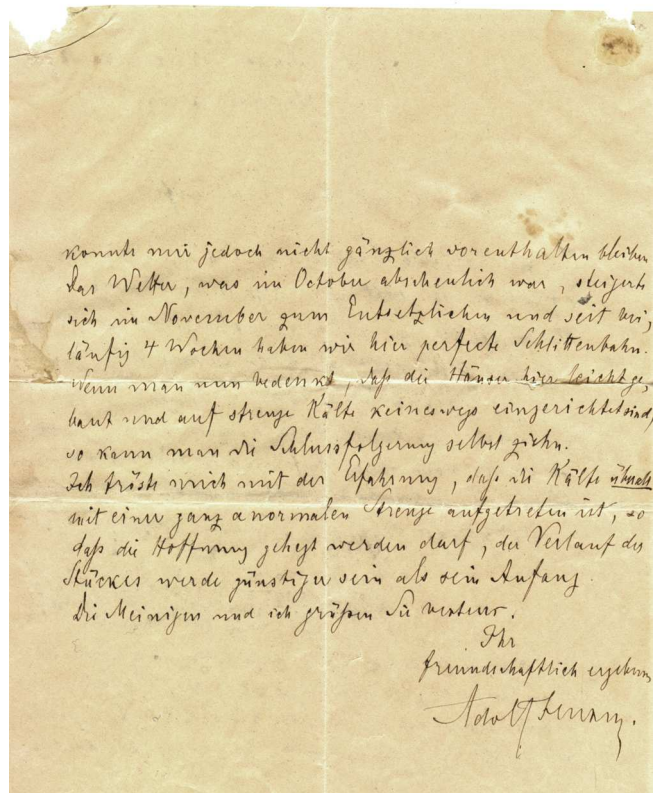 konnte mir jedoch nicht gänzlich vorenthalten bleiben
Das Wetter, was im October abscheulich war, steigerte
sich im November zum Entsetzlichen und seit bei,
läufig 4 Wochen haben wir hier perfecte Schlittenbahn.
Wenn man nun bedenkt, daß die Häuser hier leicht ge,
baut und auf strenge Kälte keineswegs eingerichtet sind,
so kann man die Schlussfolgerung selbst ziehn.
Ich tröste mich mit der Erfahrung, daß die Kälte überall
mit einer ganz anormalen Strenge aufgetreten ist, so
daß die Hoffnung gehegt werden darf, der Verlauf des
Stückes werde günstiger sein als sein Anfang.
Die Meinigen und ich grüßen Sie bestens.
Ihr
freundschaftlich ergebener
Adolf